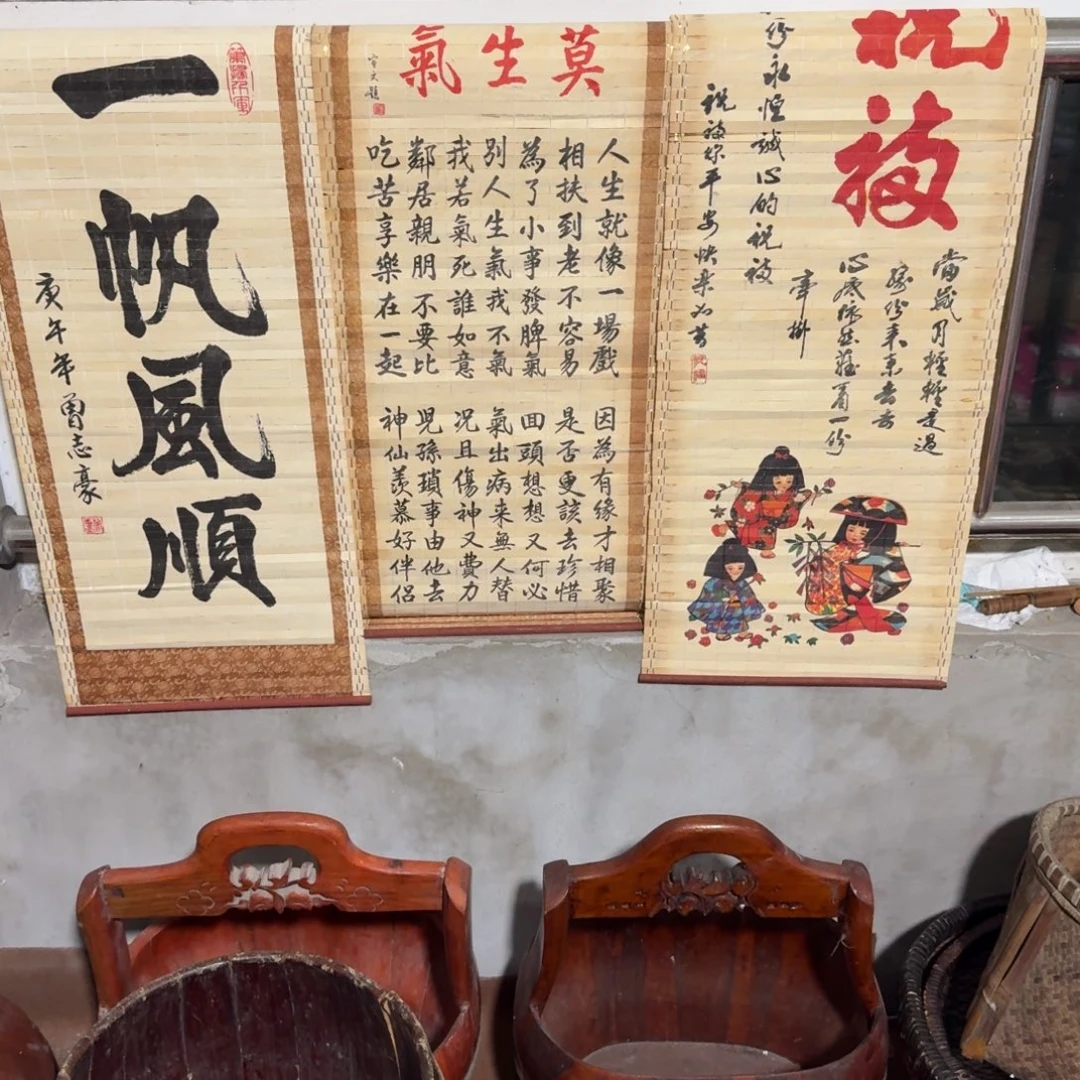 一帆風順
庚午年曾志豪
莫生氣
人生就像一場戲 因為有緣才相聚
相扶到老不容易 是否更該去珍惜
為了小事發脾氣 囬頭想想又何必
別人生氣我不氣 氣出病来無人替
我若氣死誰如意 况且傷神又費力
鄰居親朋不要比 兒孫瑣事由他去
吃苦享樂在一起 神仙羨慕好伴侶
祝福
當歲月輕輕走過
緣份来来去去
心底依然藏着一份
牽掛
份永恒誠心的祝福
祝福你平安快樂如昔